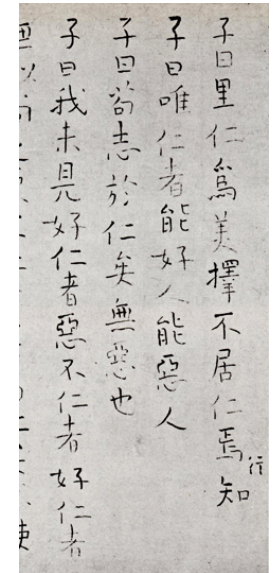 子曰里仁爲美擇不居仁焉知
子曰唯仁者能好人能惡人
子曰茍志於仁矣無惡也
子曰我未見好仁者惡不仁者好仁者